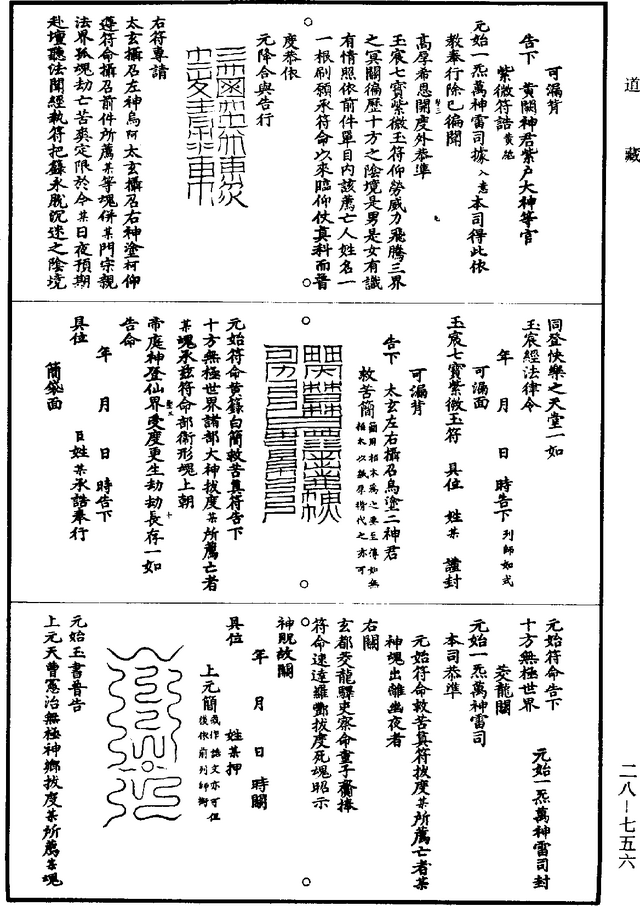 道藏
可漏背
告下　黃闕神君紫户大神等官
紫微符誥
元始一炁萬神雷司據入意本司得此依
教奉行除已徧聞
高厚希恩開度外恭準
玉宸七寶紫微玉符仰勞威力飛騰三界
之冥關徧歷十方之陰境是男是女有識
有情照依前件單目内該薦亡人姓名一
一根刷願承符命以來臨仰仗真科而普
度恭依
元降合與告行
右符專請
太玄攝召左神烏阿太玄攝召右神塗柯仰
遵符命攝召前件所薦某等魂併某門宗親
法界孤魂劫亡苦爽定限於今某日夜預期
赴壇聽法聞經執符把籙永脫沉迷之陰境
同登快樂之天堂一如
玉宸經法律令
年　月　日　時告下列師如式
可漏面
玉宸七寶紫微玉符　具位　姓某　謹封
可漏背
告下　太玄左右攝召烏塗二神君
救苦簡
元始符命黄籙白簡救苦真符告下
十方無極世界諸部大神拔度某所薦亡者
某魂承兹符命部衞形魂上朝
帝庭神登仙界受度更生劫劫長存一如
告命
年　月　日　時告下
具位　臣姓某承誥奉行
簡袋面
元始符命告下
十方無極世界　元始一炁萬神雷司封
茭龍關
元始一炁萬神雷司
本司恭準
元始符命救苦真符拔度某所薦亡者某
神魂出離幽夜者
右關
玄都茭龍驛吏察命童子齎捧
符命速達羅酆拔度死魂昭示
神貺故關
年　月　日　時關
具位　姓某押
上元簡或作誥文亦可但後依前列師銜
元始玉書普告
上元天曹憲治無極神鄉拔度某所薦某魂
二八—七五六